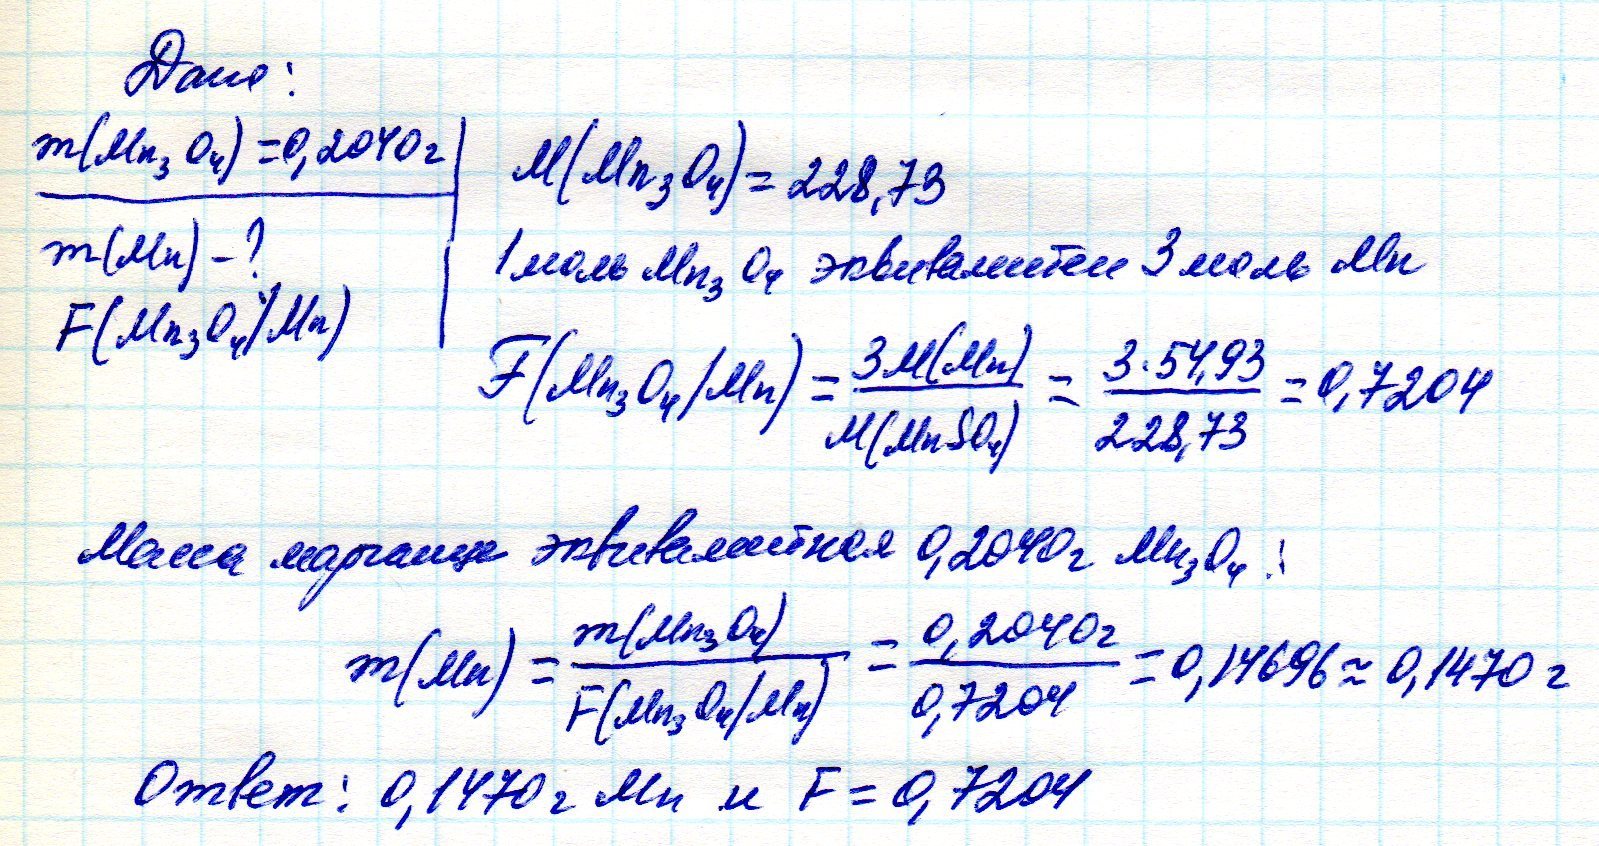 Дано:
m(Mn₃O₄) = 0,2040 г
m(Mn) - ?
F(Mn₃O₄/Mn)
M(Mn₃O₄) = 228,73
1 моль Mn₃O₄ эквивалентен 3 моль Mn
F(Mn₃O₄/Mn) = 3M(Mn) / M(MnSO₄) = 3·54,93 / 228,73 = 0,7204
Масса марганца эквивалентная 0,2040 г Mn₃O₄:
m(Mn) = m(Mn₃O₄) / F(Mn₃O₄/Mn) = 0,2040 г / 0,7204 = 0,14696 ≈ 0,1470 г
Ответ: 0,1470 г Mn и F = 0,7204